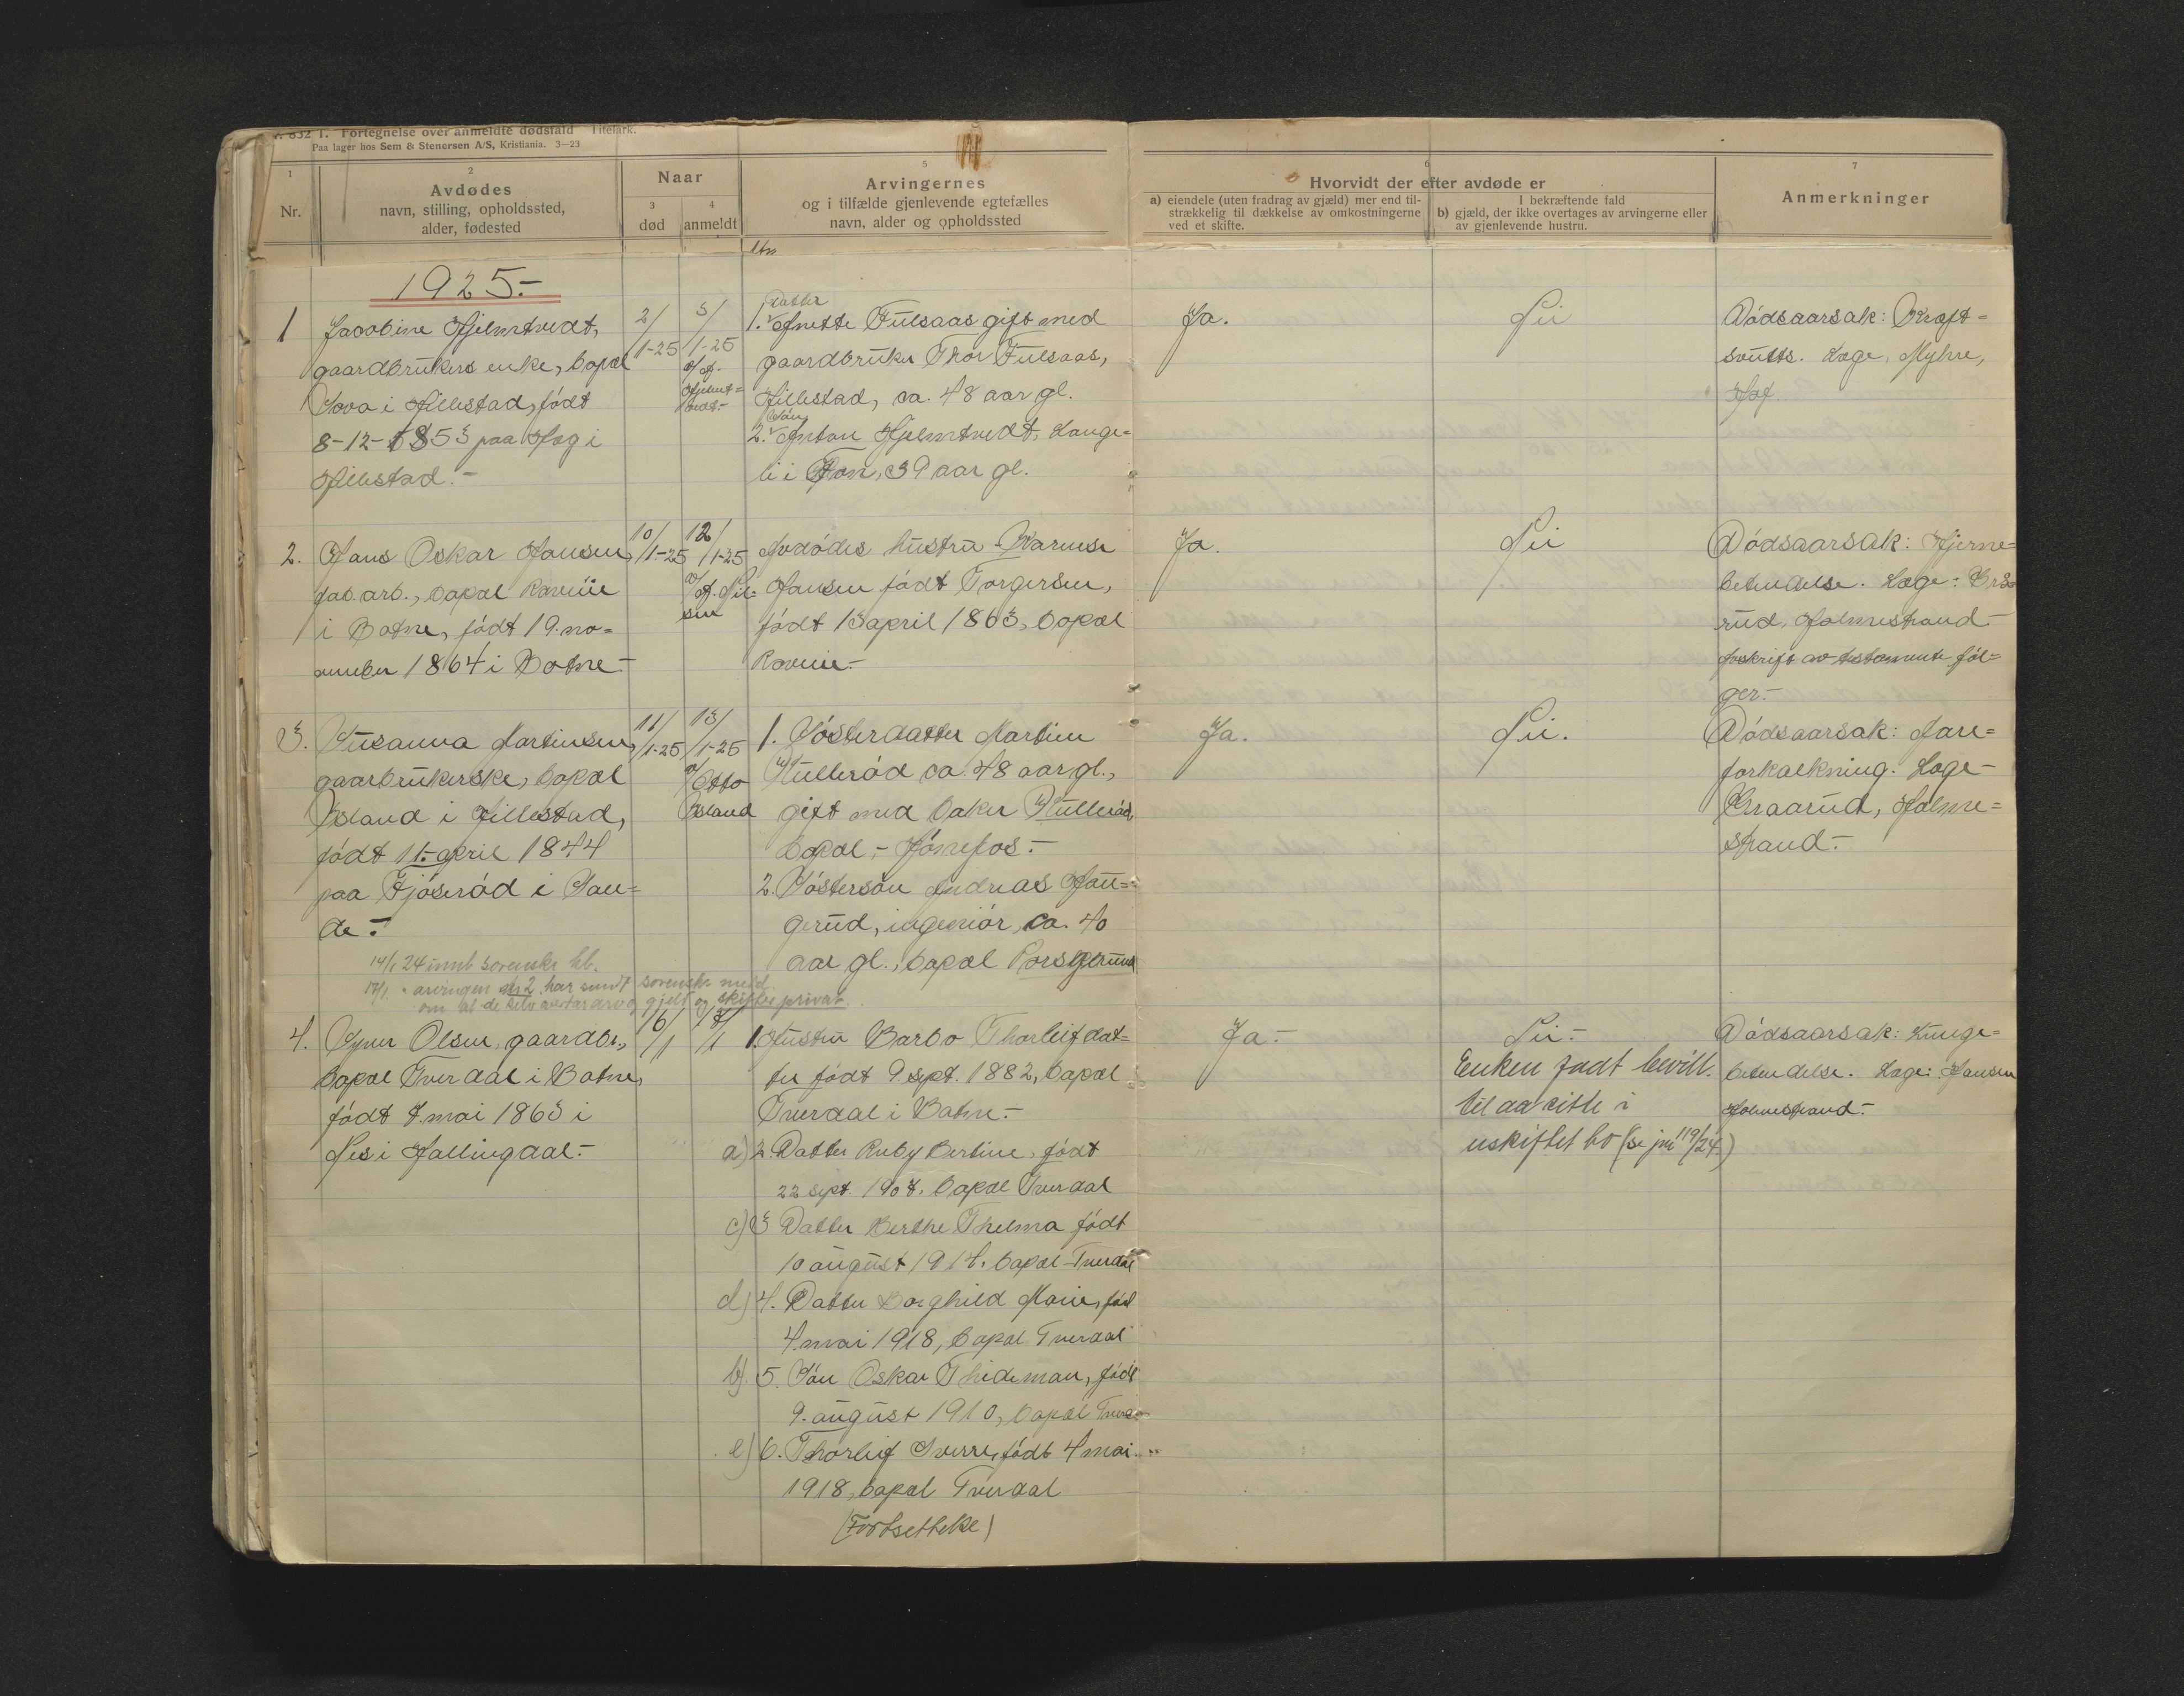 832 1. Fortegnelse over anmeldte dødsfald Titelark.
Paa lager hos Sem & Stenersen A/S, Kristiania. 3—23
1
Nr.
2
Avdødes
navn, stilling, opholdssted,
alder, fødested
Naar
3
død
4
anmeldt
5
Arvingernes
og i tilfælde gjenlevende egtefælles
navn, alder og opholdssted
6
Hvorvidt der efter avdøde er
a) eiendele (uten fradrag av gjæld) mer end til-
strækkelig til dækkelse av omkostningerne
ved et skifte.
I bekræftende fald
b) gjæld, der ikke overtages av arvingerne eller
av gjenlevende hustru.
7
Anmerkninger
1925.-
1
Jacobine Hjelmtvedt,
gaardbrukers enke, bopæl
i Hillestad, født
8-12-1853 paa Hag i
Hillestad.-
2/
1-25
3/
1-25
v/ A.
Hjelmt=
vedt.-
Datter
1. Anette Fulsaas gift med
gaardbruker Thor Fulsaas,
Hillestad, ca. 48 aar gl.
Søn
2. Anton Hjelmtvedt, Lange=
li i Fon, 39 aar gl.
Ja.
Nei
Dødsaarsak: Kræft=
svulst. Læge, Myhre,
Hof.
2.
Hans Oskar Hansen,
fab.arb., bopæl Raveiie
i Botne, født 19. no=
vember 1864 i Botne.-
10/
1-25
12/
1-25
v/ A. Nil=
sen
Avdødes hustru Karense
Hansen født Torgersen,
født 13 april 1863, bopæl
Raveiie.-
Ja.
Nei
Dødsaarsak: Hjerne=
betendelse. Læge: Braa=
rud, Holmestrand
Avskrift av testamente føl=
ger.-
3.
Susanna Martinsen,
gaarbrukerske, bopæl
Island i Hillestad,
født 11. april 1844
paa Fjøserød i San=
de.-
11/
1-25
13/
1-25
v/ Otto
Island
1. Søsterdatter Martine
Hullerød ca. 48 aar gl.,
gift med baker Hullerød,
bopæl,- Hønefos.-
2. Søstersøn Andreas Hau=
gerud, ingeniør, ca. 40
aar gl., bopæl Porsgrund
Ja.
Nei.
Dødsaarsak: Aare=
forkalkning. Læge-
Braarud, Holme=
strand.-
14/1 24 innb sorenskr bl.
17/1. - arvingen nr 2. har sendt sorenskr medd.
om at de selv avtar arv og gjeld og skifter privat.
4.
Syver Olsen, gaardbr.,
bopæl Tverdal i Botne,
født 7. mai 1863 i
Nes i Hallingdal.-
16/
1
18/
1
1. Hustru Barbo Thorleifdat=
ter født 9 sept. 1882, bopæl
Tverdal i Botne.-
a) 2. Datter Ruby Bertine, født
22 sept. 1907. bopæl Tverdal
c) 3 Datter Berthe Thelma født
10 august 1914. bopæl Tverdal
d) 4. Datter Borghild Marie, fød
4. mai 1918, bopæl Tverdal
b). 5. Søn Oskar Thideman, født
9. august 1910, bopæl Tverd-
e) 6. Thorleif Sverre, født 4 mai
1918, bopæl Tverdal
(Fortsettelse)
Ja.-
Nei.-
Enken fadt bevill.
til aa sitte i
uskiftet bo (se jnr 119/24.)
Dødsaarsak: Lunge=
betendelse. Læge: Hansen
Holmestrand.-